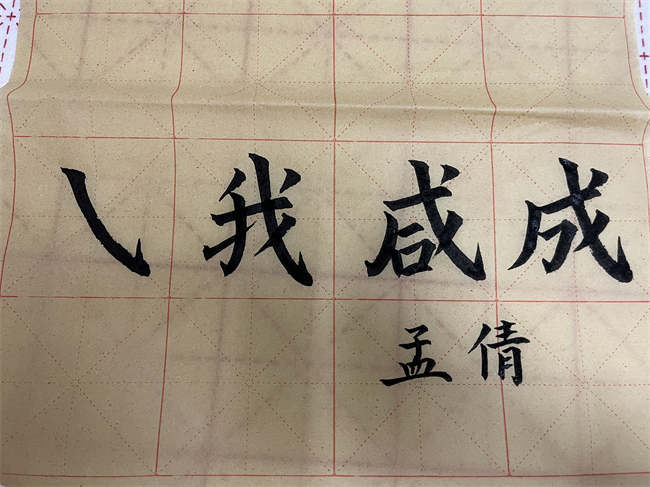 ㇂我咸成
孟倩